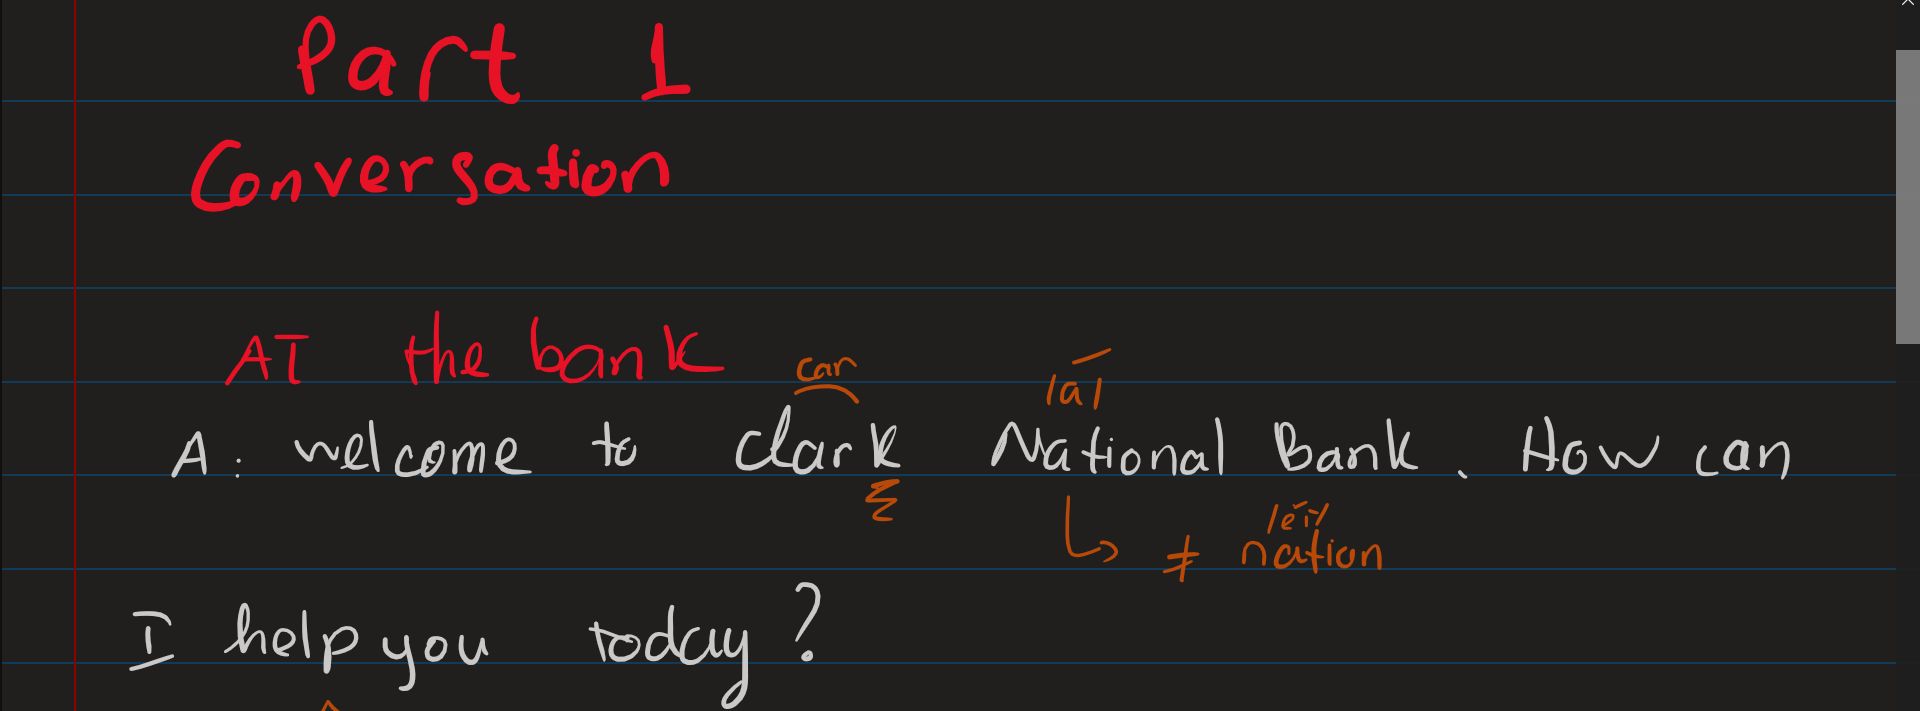 Part 1
Conversation
AT the bank
car
/a/
A: welcome to Clark National Bank. How can
/ei/
≠ nation
I help you today?